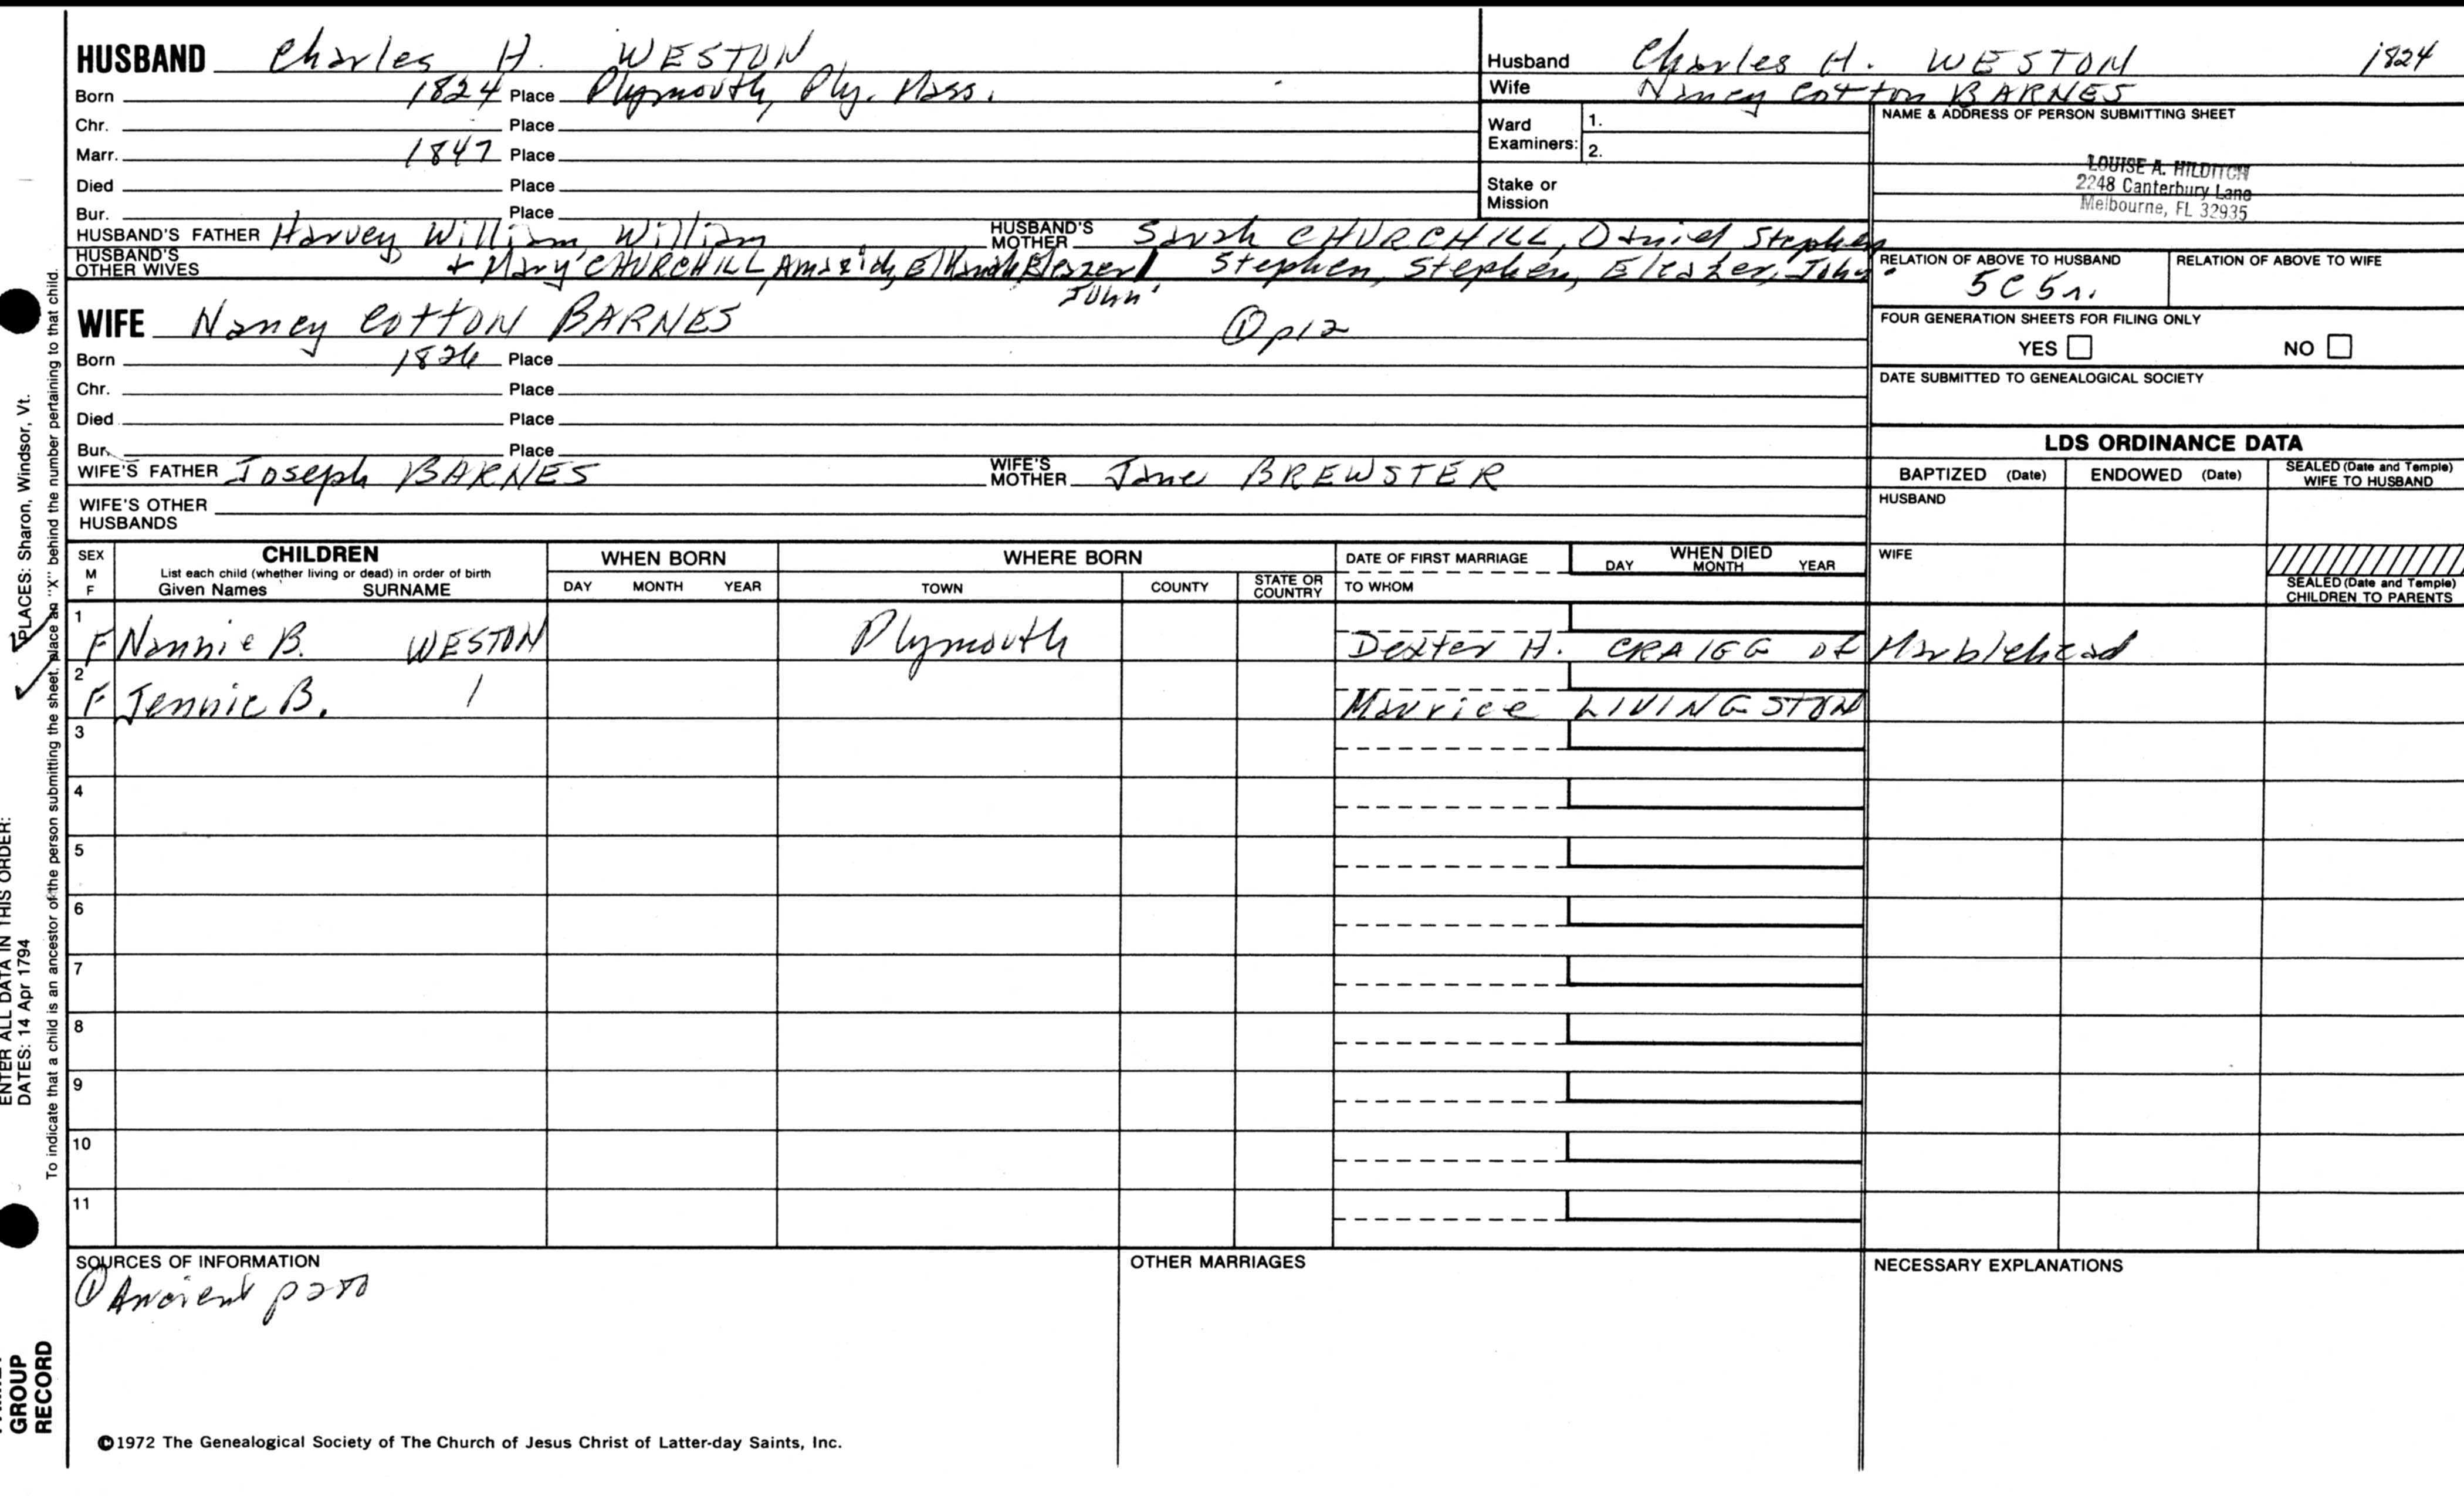 HUSBAND Charles H. WESTON
Born 1824 Place Plymouth, Ply. Mass.
Chr. Place
Marr. 1847 Place
Died Place
Bur. Place
HUSBAND'S FATHER Harvey William, William HUSBAND'S MOTHER Sarah CHURCHILL, Daniel Stephen
HUSBAND'S OTHER WIVES + Mary CHURCHILL, Amaziah, Elkanah Eleazer John Stephen, Stephen, Eleazer, John
WIFE Nancy Cotton BARNES ① p12
Born 1826 Place
Chr. Place
Died Place
Bur. Place
WIFE'S FATHER Joseph BARNES WIFE'S MOTHER Jane BREWSTER
WIFE'S OTHER HUSBANDS
Husband Charles H. WESTON 1824
Wife Nancy Cotton BARNES
Ward Examiners: 1.
2.
Stake or Mission
NAME & ADDRESS OF PERSON SUBMITTING SHEET
LOUISE A. HILDITCH
2248 Canterbury Lane
Melbourne, FL 32935
RELATION OF ABOVE TO HUSBAND RELATION OF ABOVE TO WIFE
5C5r.
FOUR GENERATION SHEETS FOR FILING ONLY
YES NO
DATE SUBMITTED TO GENEALOGICAL SOCIETY
LDS ORDINANCE DATA
BAPTIZED (Date) ENDOWED (Date) SEALED (Date and Temple) WIFE TO HUSBAND
HUSBAND
WIFE
SEALED (Date and Temple) CHILDREN TO PARENTS
SEX M F CHILDREN WHEN BORN WHERE BORN DATE OF FIRST MARRIAGE WHEN DIED
List each child (whether living or dead) in order of birth
Given Names SURNAME DAY MONTH YEAR TOWN COUNTY STATE OR COUNTRY TO WHOM DAY MONTH YEAR
1 F Nannie B. WESTON Plymouth Dexter H. CRAIGG of Marblehead
2 F Jennie B. Maurice LIVINGSTON
3
4
5
6
7
8
9
10
11
SOURCES OF INFORMATION OTHER MARRIAGES NECESSARY EXPLANATIONS
① Ancient
©1972 The Genealogical Society of The Church of Jesus Christ of Latter-day Saints, Inc.
ENTER ALL DATA IN THIS ORDER:
DATES: 14 Apr 1794 PLACES: Sharon, Windsor, Vt.
To indicate that a child is an ancestor of the person submitting the sheet, place an "X" behind the number pertaining to that child.
GROUP
RECORD